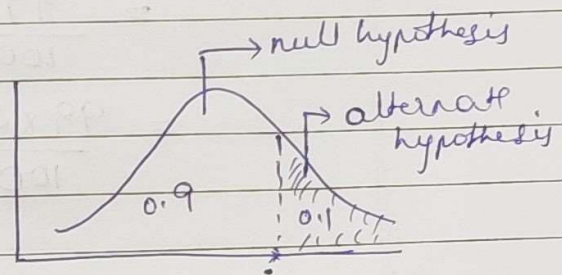 null hypothesis
alternate
hypothesis
0.9
0.1